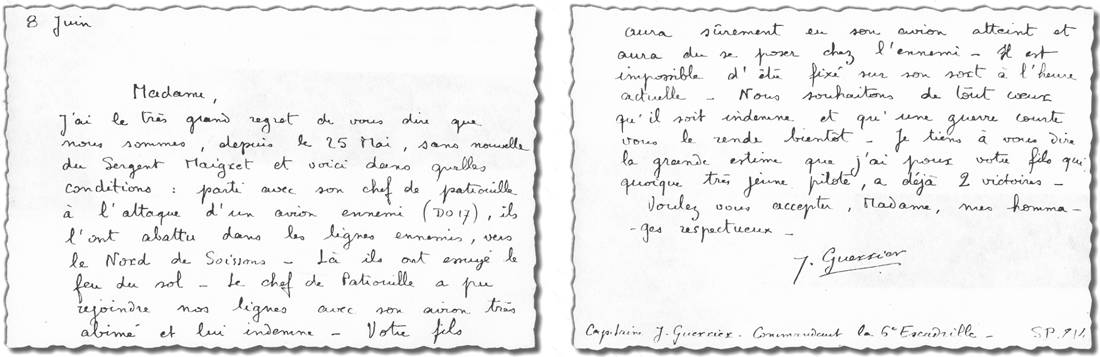 8 Juin
Madame,
J'ai le très grand regret de vous dire que
nous sommes, depuis le 25 Mai, sans nouvelle
du Sergent Maigret et voici dans quelles
conditions : parti avec son chef de patrouille
à l'attaque d'un avion ennemi (DO 17), ils
l'ont abattu dans les lignes ennemies, vers
le Nord de Soissons - Là ils ont essuyé le
feu du sol - Le chef de Patrouille a pu
rejoindre nos lignes avec son avion très
abimé et lui indemne - Votre fils
aura sûrement eu son avion atteint et
aura du se poser chez l'ennemi - Il est
impossible d'être fixé sur son sort à l'heure
actuelle - Nous souhaitons de tout coeur
qu'il soit indemne et qu'une guerre courte
vous le rende bientôt - Je tiens à vous dire
la grande estime que j'ai pour votre fils qui
quoique très jeune pilote, a déjà 2 victoires -
Voulez vous accepter, Madame, mes homma-
-ges respectueux -
J. Guerrier
Capitaine J. Guerrier. Commandant la 5e Escadrille - SP.